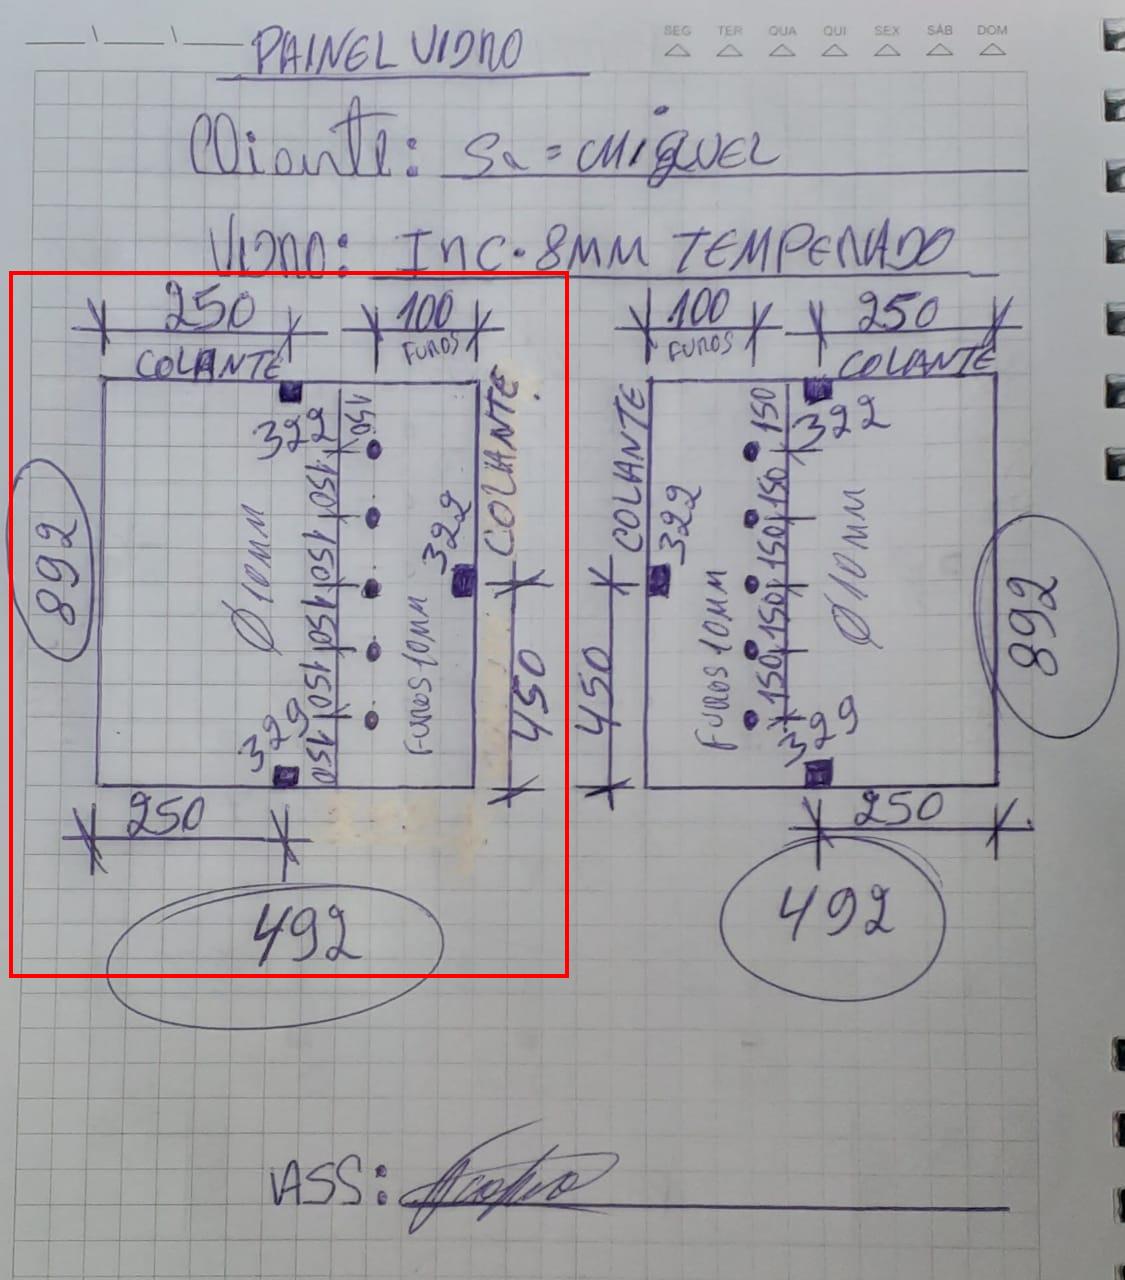 SEG TER QUA QUI SEX SÁB DOM
PAINEL VIDRO
Cliante: Sr = MIGUEL
VIDRO: INC. 8MM TEMPERADO
250
100
FUROS
COLANTE
COLANTE
322
150
150
150
150
150
150
322
322
Ø 10MM
FUROS 10MM
892
450
250
492
100
FUROS
250
COLANTE
COLANTE
322
150
150
150
150
150
322
322
FUROS 10MM
Ø 10MM
892
450
250
492
ASS: